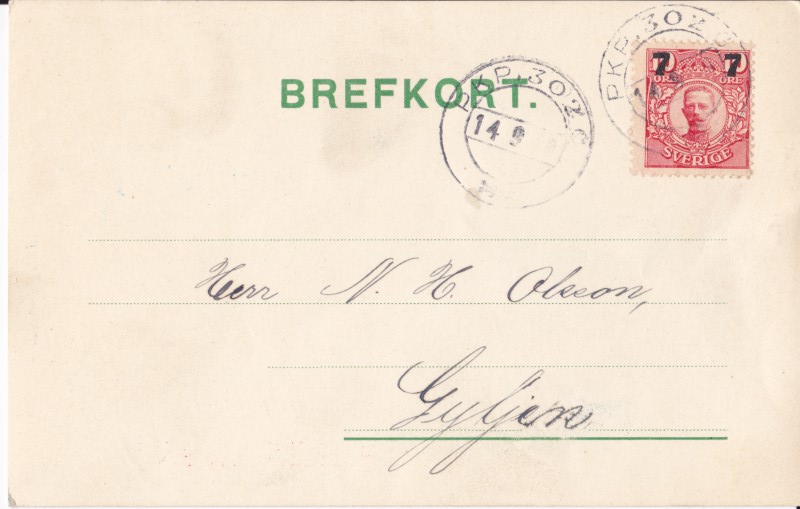 BREFKORT.
PKP. 302 C
14 9
PKP. 302
7 7
ÖRE ÖRE
SVERIGE
Herr N. H. Olsson,
Gyljen